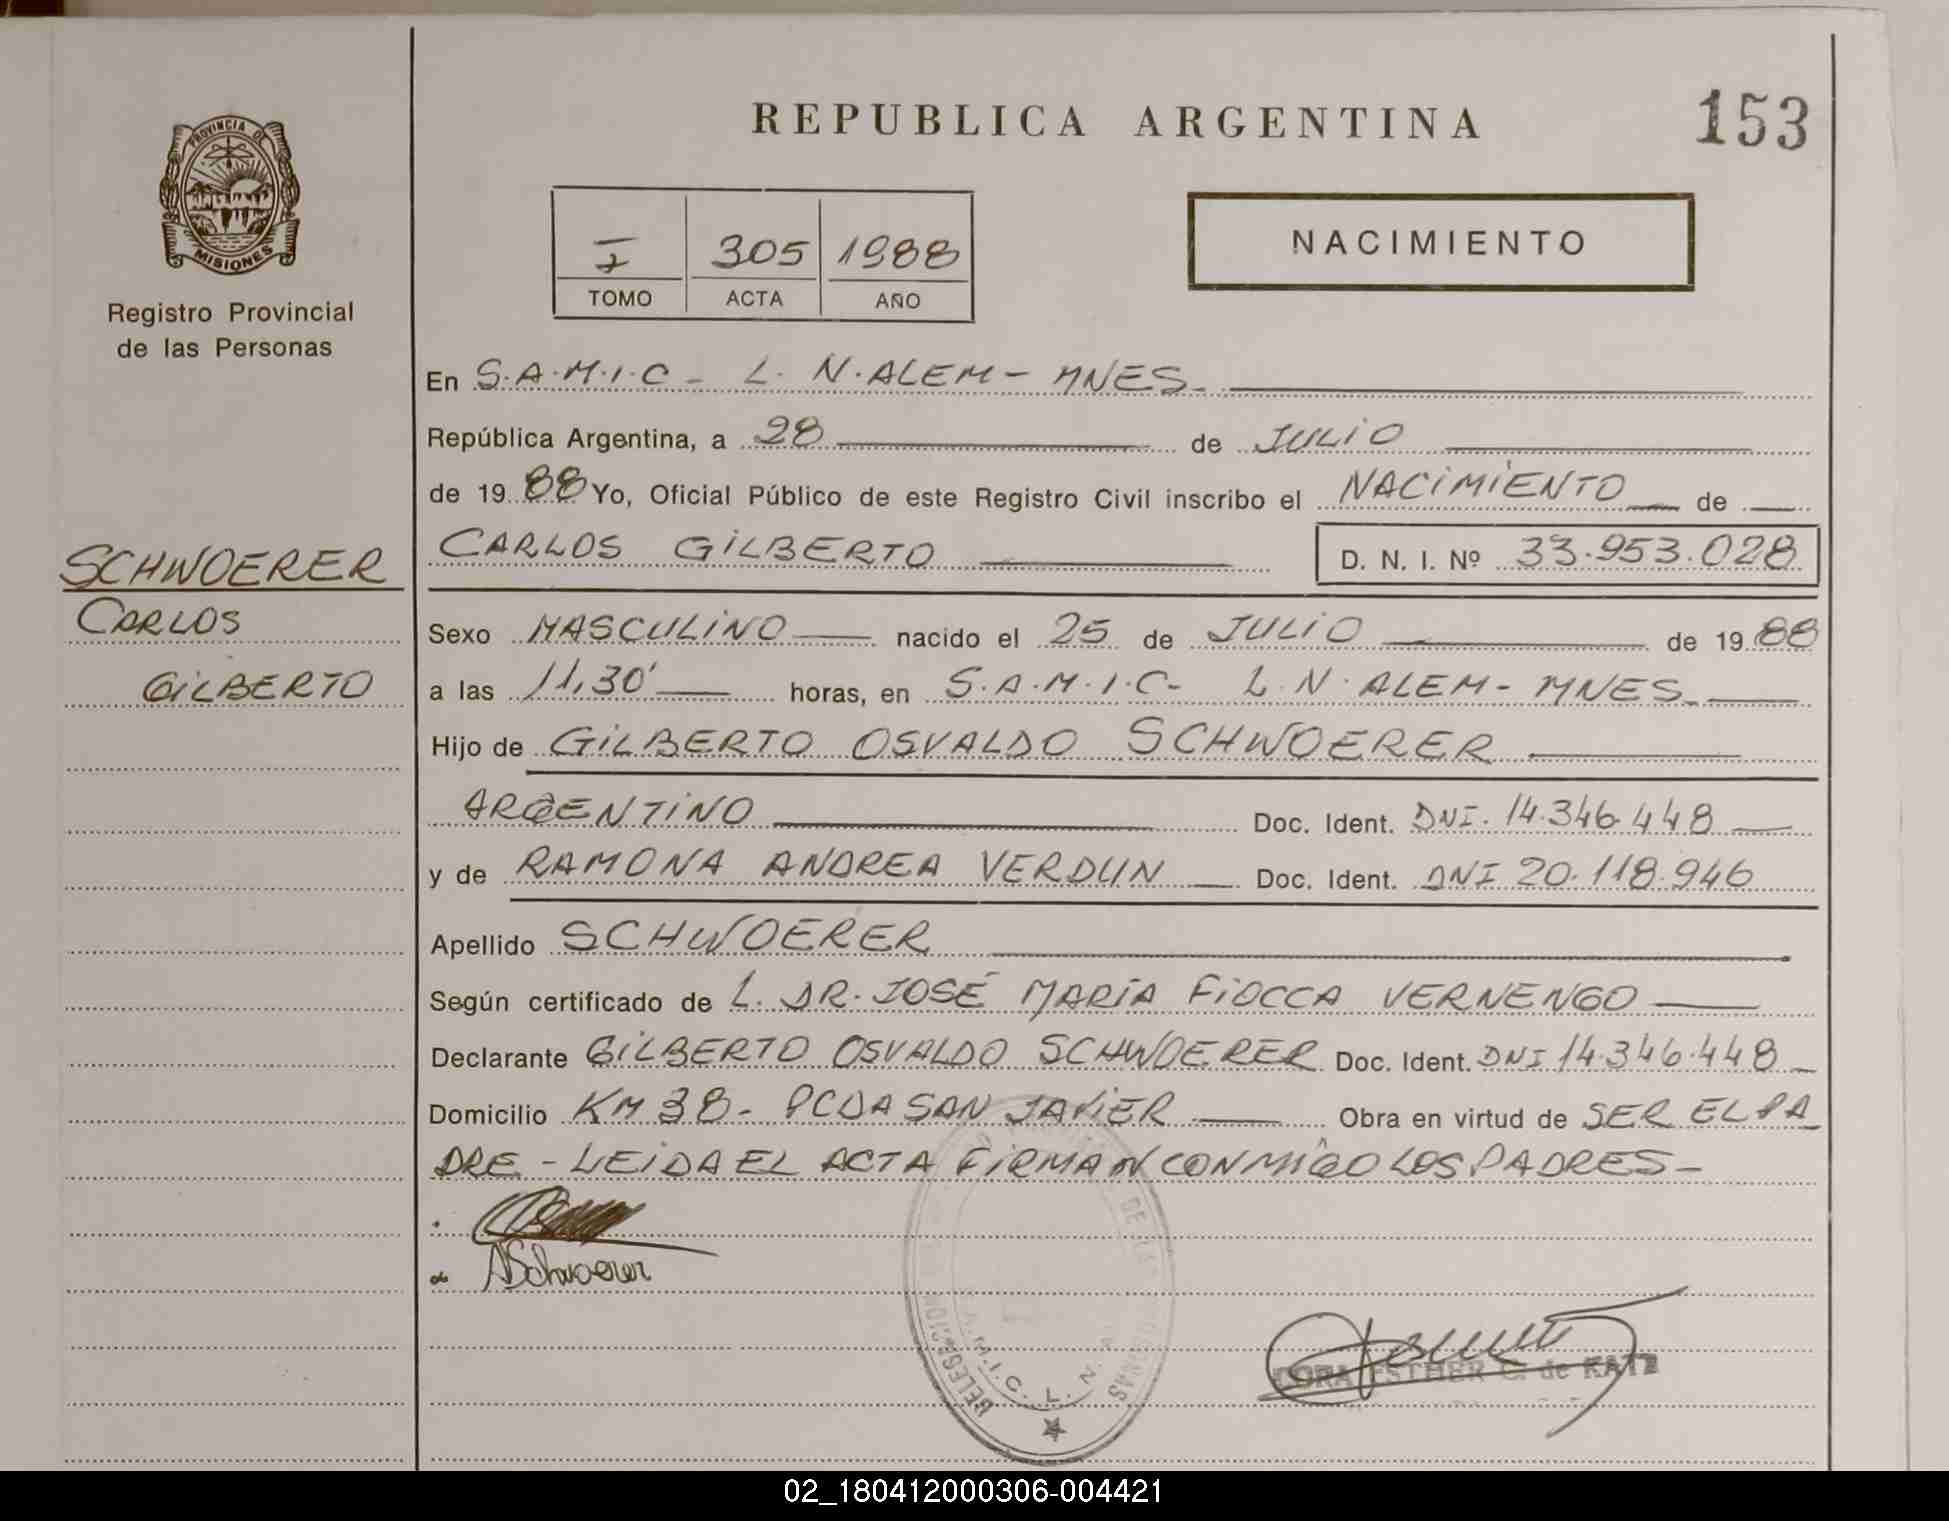 REPUBLICA ARGENTINA
153
PROVINCIA DE
MISIONES
Registro Provincial
de las Personas
I 305 1988
TOMO ACTA AÑO
NACIMIENTO
En S.A.M.I.C - L. N. ALEM - MNES.
República Argentina, a 28 de JULIO
de 1988 Yo, Oficial Público de este Registro Civil inscribo el NACIMIENTO de
CARLOS GILBERTO D. N. I. Nº 33.953.028
SCHWOERER
CARLOS
GILBERTO
Sexo MASCULINO nacido el 25 de JULIO de 1988
a las 11,30' horas, en S.A.M.I.C- L.N. ALEM - MNES.
Hijo de GILBERTO OSVALDO SCHWOERER
ARGENTINO Doc. Ident. DNI. 14.346.448
y de RAMONA ANDREA VERDUN Doc. Ident. DNI 20.118.946
Apellido SCHWOERER
Según certificado de L. DR. JOSÉ MARÍA FIOCCA VERNENGO
Declarante GILBERTO OSVALDO SCHWOERER Doc. Ident. DNI 14.346.448
Domicilio KM 38 - PCDA SAN JAVIER Obra en virtud de SER EL PA
DRE - LEIDA EL ACTA FIRMAN CONMIGO LOS PADRES -
ASchwoerer
DELEGACION
S.A.M.I.C. L. N. A
DE LAS PERSONAS
CORA ESTHER C. de KATZ
02_180412000306-004421